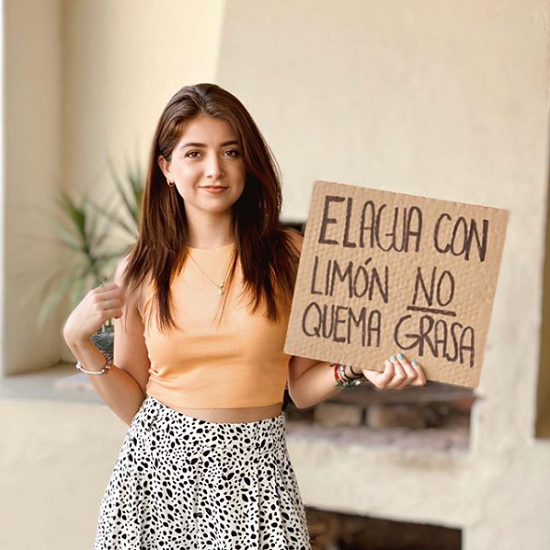 EL AGUA CON
LIMÓN NO
QUEMA GRASA